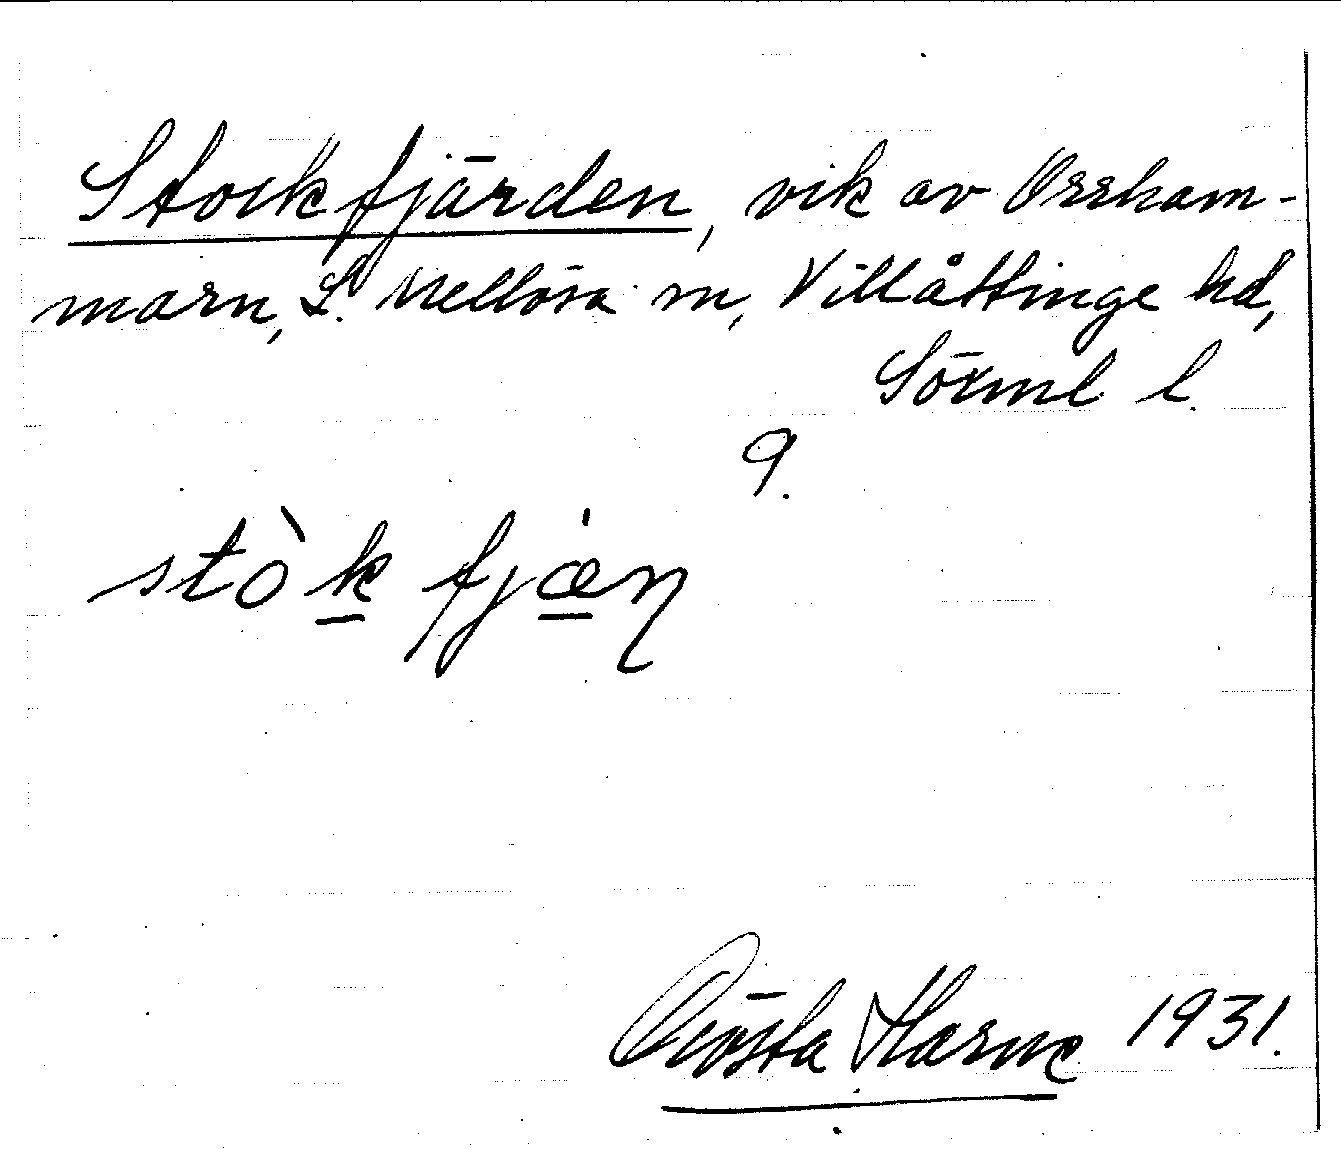 Stockfjärden, vik av Orrham-
marn, L. Mellösa sn, Villåttinge hd,
Sörml l.
9.
stòk fjæ̀ɳ
Gösta Harne 1931.